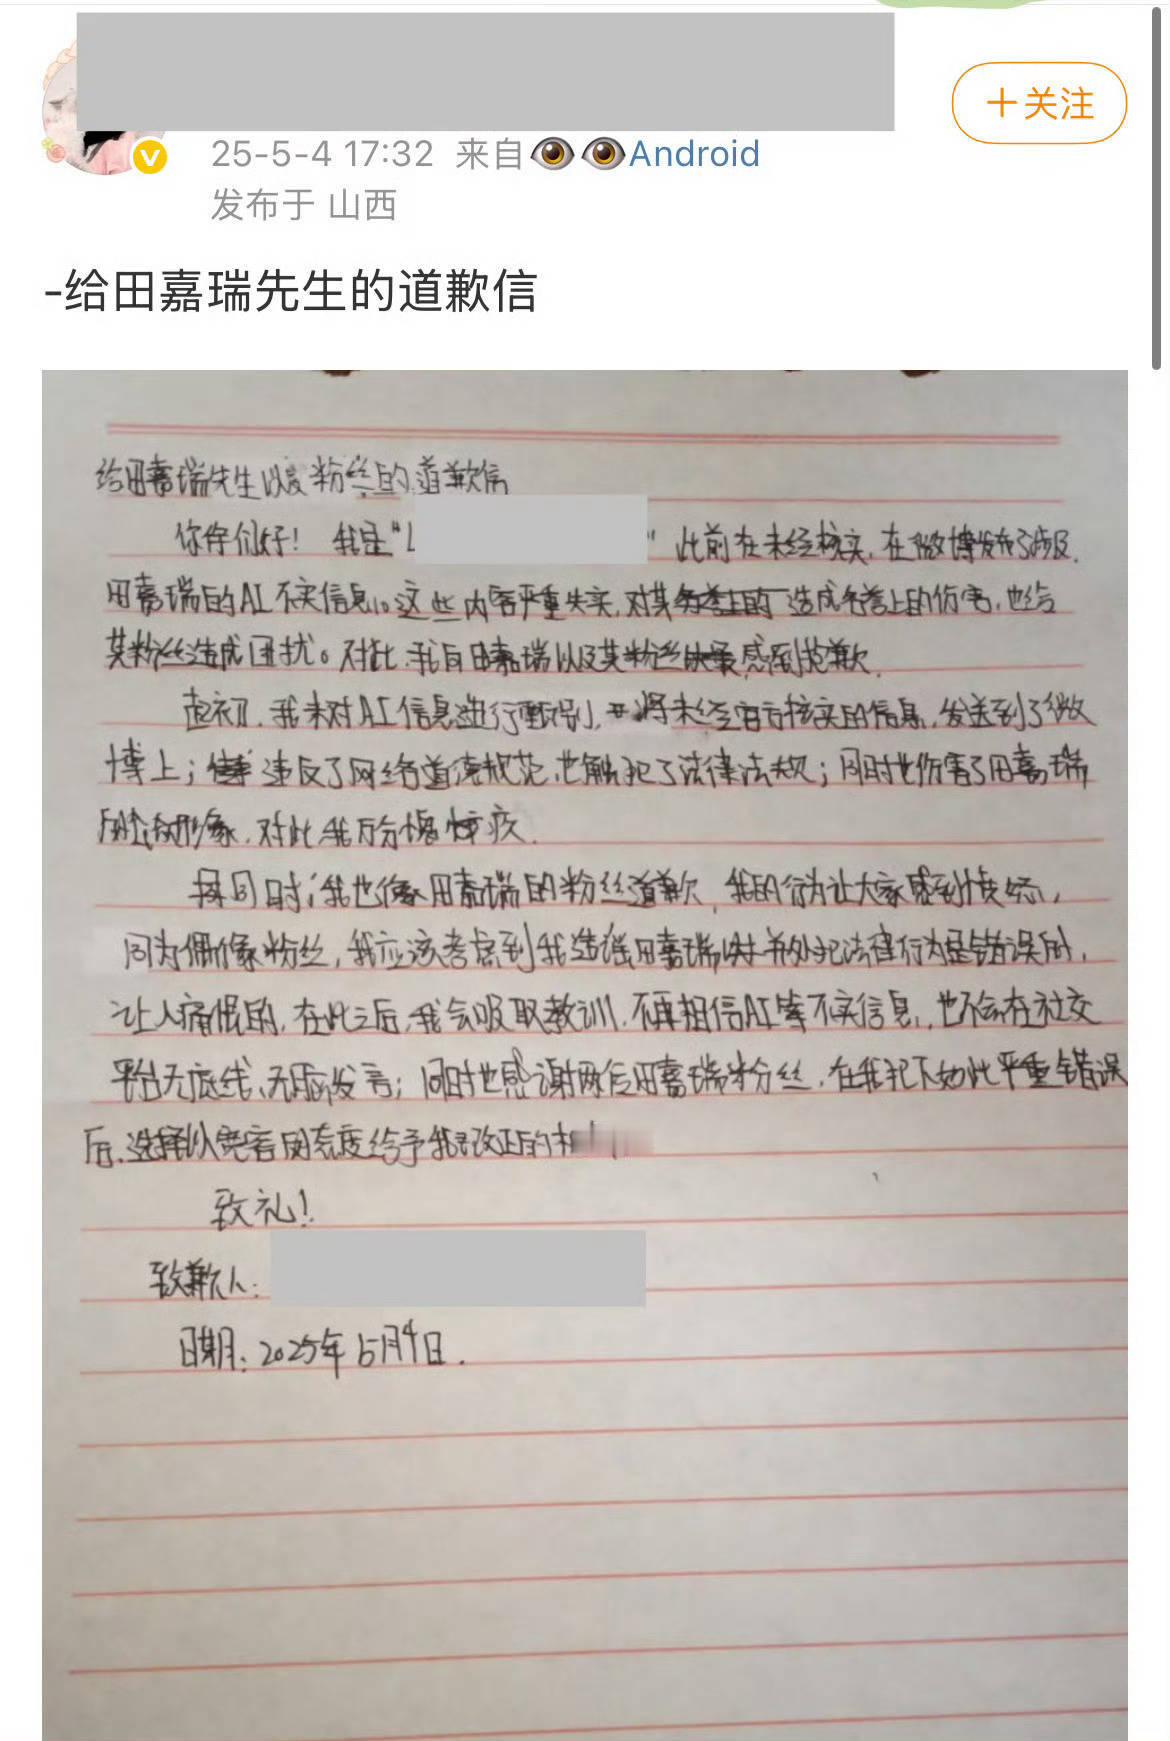 +关注
25-5-4 17:32 来自👁️👁️Android
发布于 山西
-给田嘉瑞先生的道歉信
给田嘉瑞先生以及粉丝的道歉信
你们好! 我是“L ” 此前在未经核实,在微博发布了涉及
田嘉瑞的AI不实信息。这些内容严重失实,对其造成名誉上的伤害,也给
其粉丝造成困扰。对此,我向田嘉瑞以及其粉丝感到抱歉.
起初,我未对AI信息进行甄别,将未经官方核实的信息,发送到了微
博上;违反了网络道德规范,也触犯了法律法规;同时也伤害了田嘉瑞
形象,对此我万分愧疚.
同时,我也像田嘉瑞的粉丝道歉,我的行为让大家感到愤怒,
同为偶像粉丝,我应该考虑到我造谣田嘉瑞并触犯法律行为是错误的,
让人痛恨的,在此之后,我会吸取教训,不再相信AI等不实信息,也不会在社交
平台无底线、无脑发言;同时也感谢田嘉瑞粉丝,在我犯下如此严重错误
后,选择以宽容的态度给予我改正的机
致礼!
致歉人:
日期:2025年5月4日.